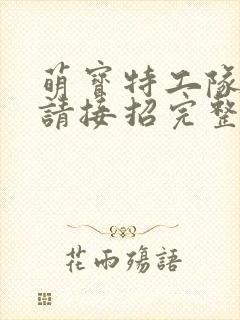 萌寶特工隊
請接招完整
花雨殤語